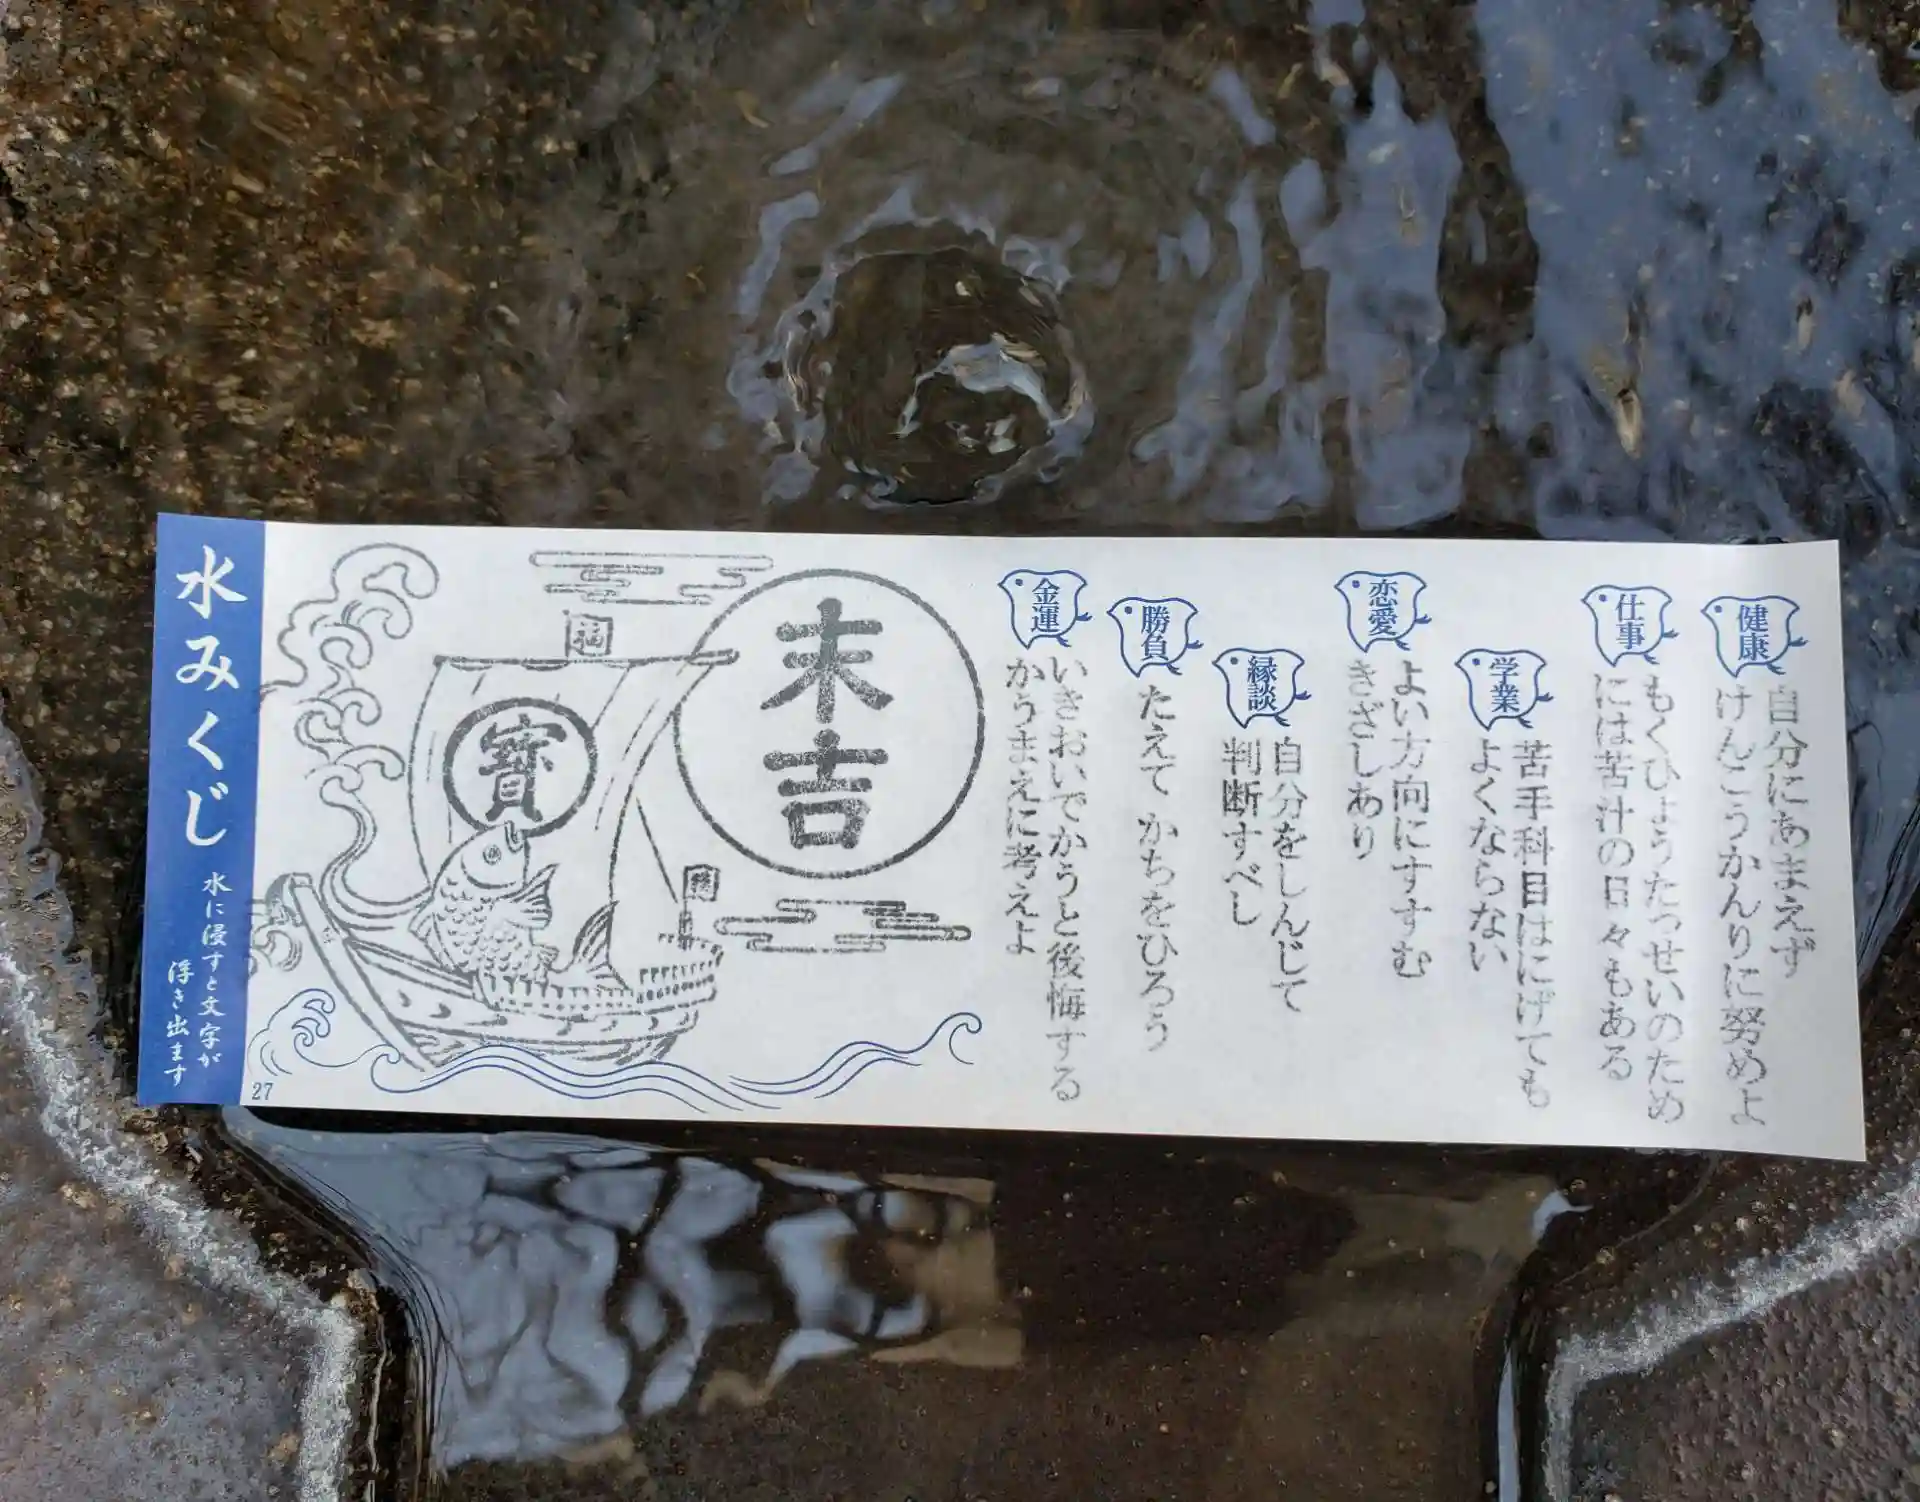 健康
自分にあまえず
けんこうかんりに努めよ
仕事
もくひょうたっせいのため
には苦汁の日々もある
学業
苦手科目はにげても
よくならない
恋愛
よい方向にすすむ
きざしあり
縁談
自分をしんじて
判断すべし
勝負
たえて かちをひろう
金運
いきおいでかうと後悔する
かうまえに考えよ
末吉
福
寶
福
水みくじ
水に浸すと文字が
浮き出ます
27